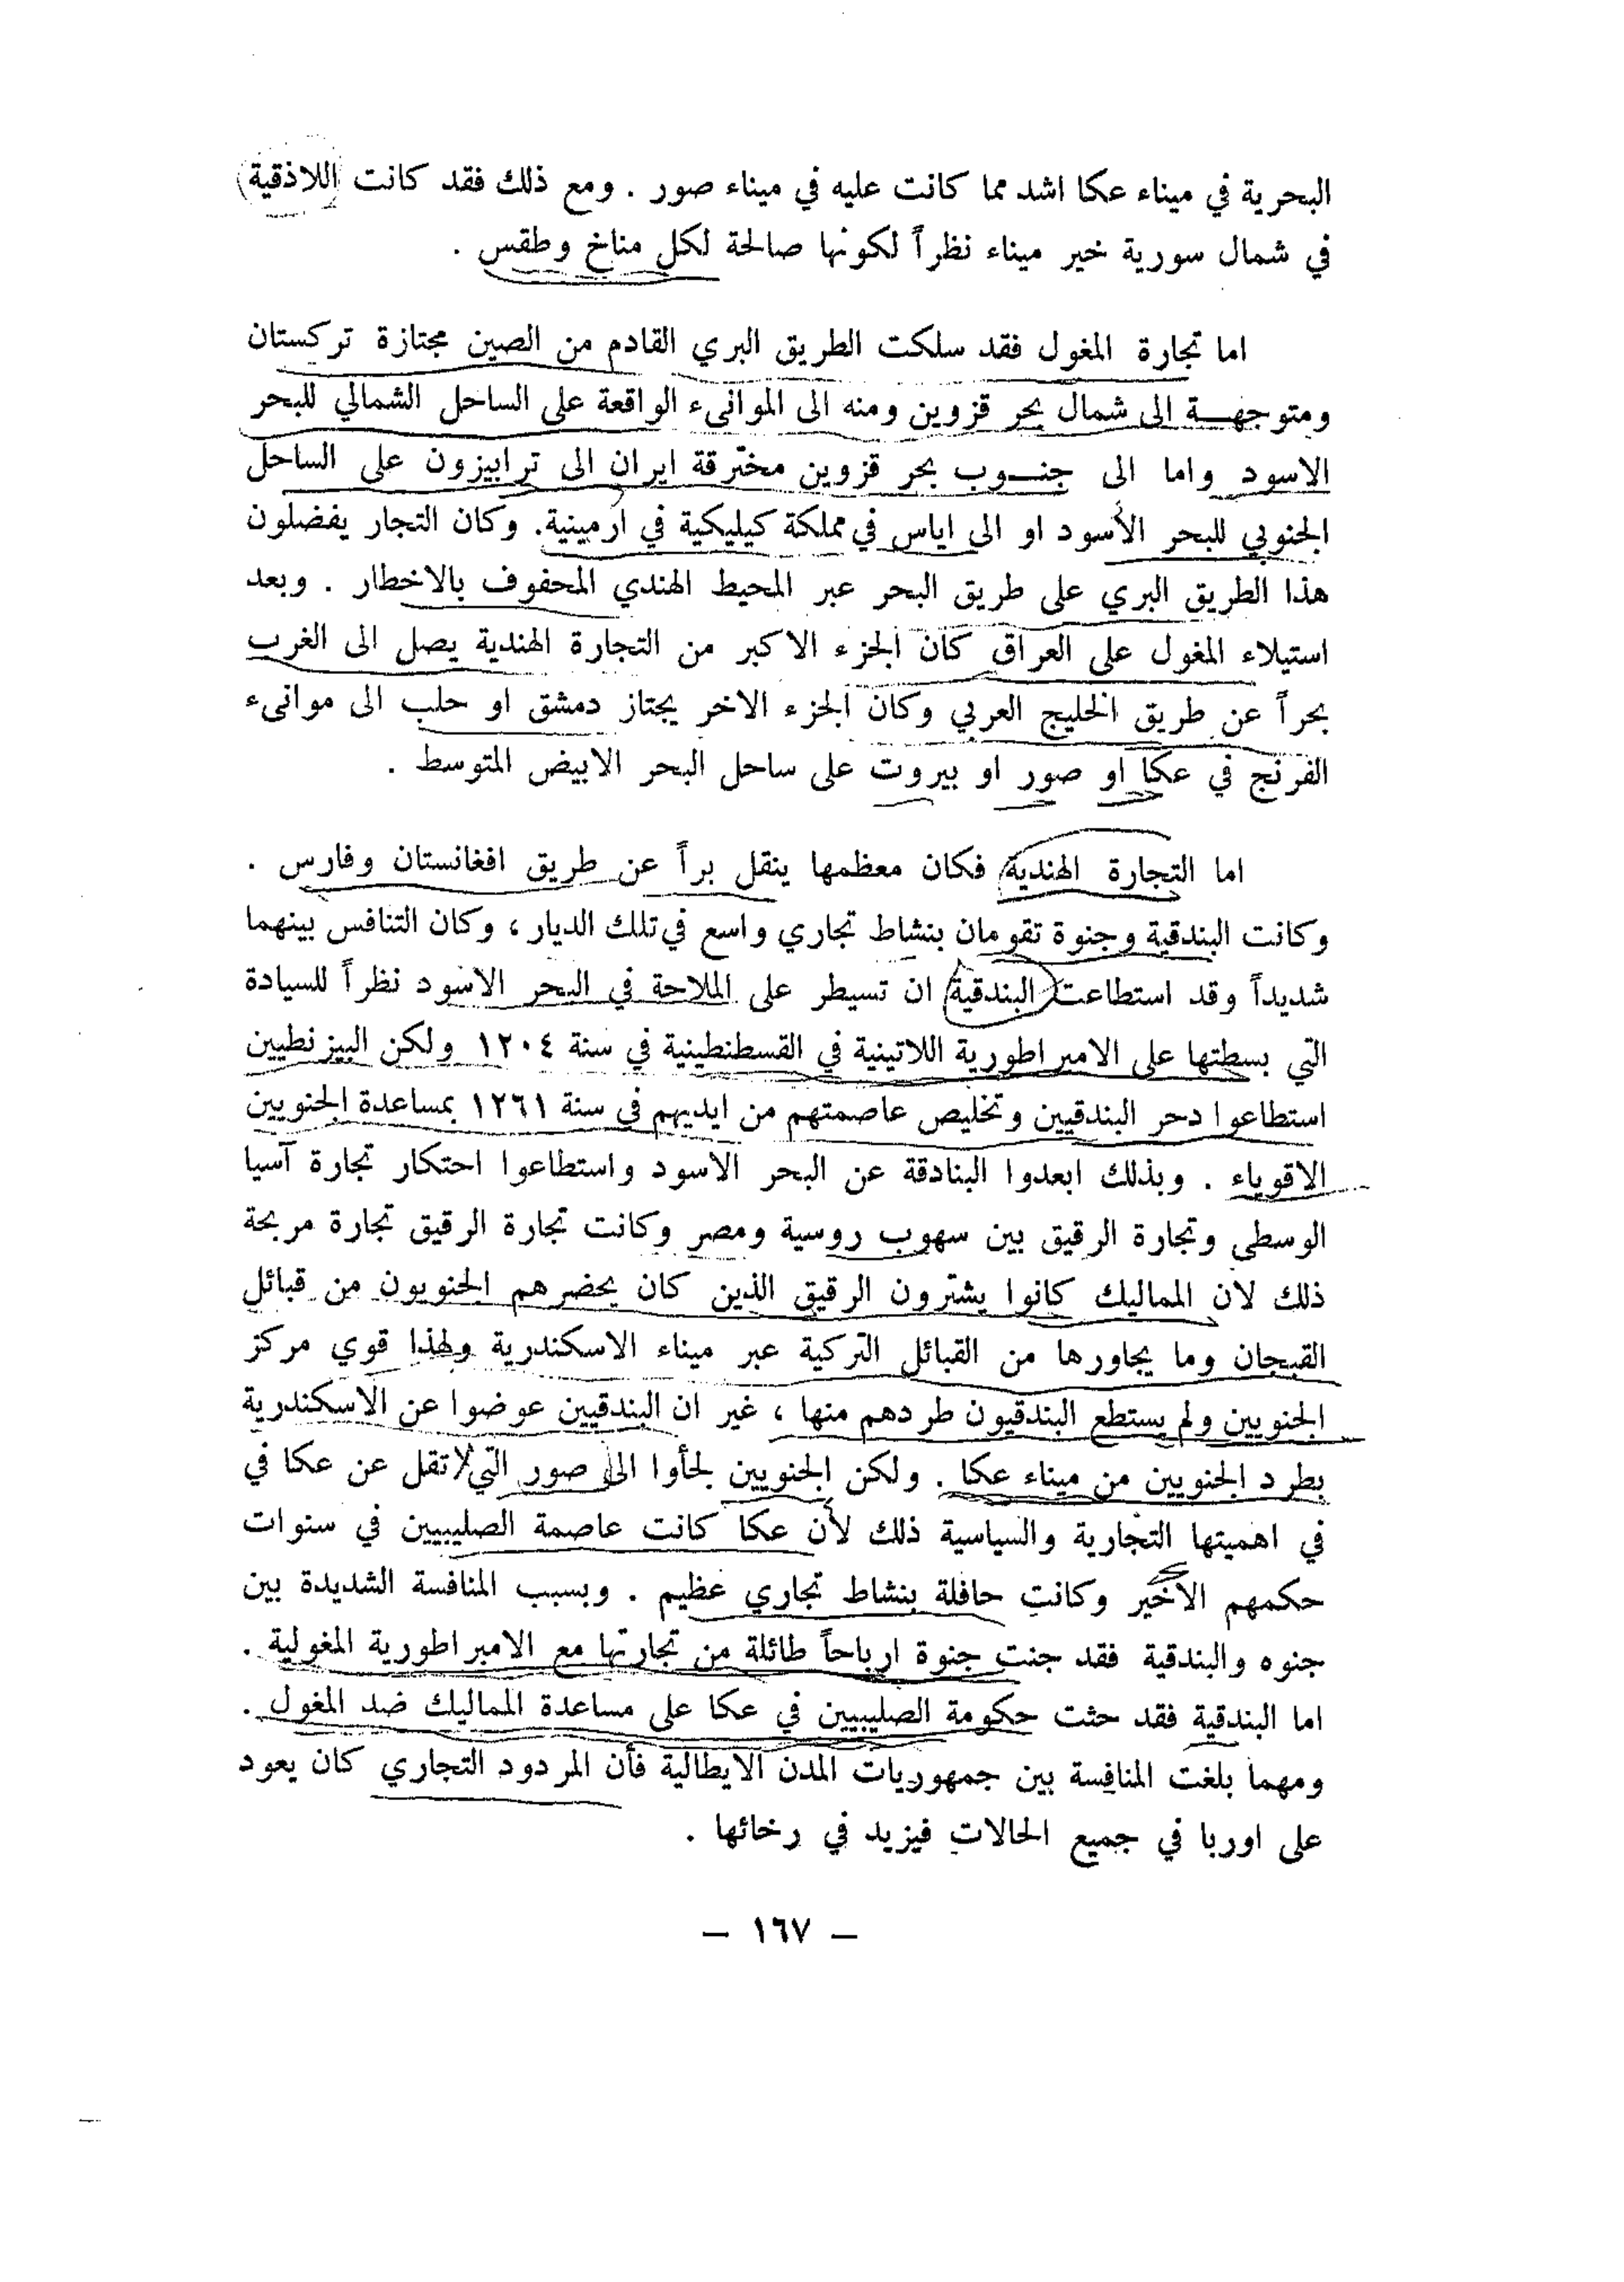 البحرية في ميناء عكا اشد مما كانت عليه في ميناء صور . ومع ذلك فقد كانت اللاذقية
في شمال سورية خير ميناء نظراً لكونها صالحة لكل مناخ وطقس .
اما تجارة المغول فقد سلكت الطريق البري القادم من الصين مجتازة تركستان
ومتوجهة الى شمال بحر قزوين ومنه الى الموانىء الواقعة على الساحل الشمالي للبحر
الاسود واما الى جنوب بحر قزوين مخترقة ايران الى ترابيزون على الساحل
الجنوبي للبحر الأسود او الى اياس في مملكة كيليكية في أرمينية. وكان التجار يفضلون
هذا الطريق البري على طريق البحر عبر المحيط الهندي المحفوف بالاخطار . وبعد
استيلاء المغول على العراق كان الجزء الاكبر من التجارة الهندية يصل الى الغرب
بحراً عن طريق الخليج العربي وكان الجزء الاخر يجتاز دمشق او حلب الى موانىء
الفرنج في عكا او صور او بيروت على ساحل البحر الابيض المتوسط .
اما التجارة الهندية فكان معظمها ينقل براً عن طريق افغانستان وفارس .
وكانت البندقية وجنوة تقومان بنشاط تجاري واسع في تلك الديار ، وكان التنافس بينهما
شديداً وقد استطاعت البندقية ان تسيطر على الملاحة في البحر الاسود نظراً للسيادة
التي بسطتها على الامبراطورية اللاتينية في القسطنطينية في سنة ١٢٠٤ ولكن البيزنطيين
استطاعوا دحر البندقيين وتخليص عاصمتهم من ايديهم في سنة ١٢٦١ بمساعدة الجنويين
الاقوياء . وبذلك ابعدوا البنادقة عن البحر الاسود واستطاعوا احتكار تجارة آسيا
الوسطى وتجارة الرقيق بين سهوب روسية ومصر وكانت تجارة الرقيق تجارة مربحة
ذلك لان المماليك كانوا يشترون الرقيق الذين كان يحضرهم الجنويون من قبائل
القبجان وما يجاورها من القبائل التركية عبر ميناء الاسكندرية ولهذا قوي مركز
الجنويين ولم يستطع البندقيون طردهم منها ، غير ان البندقيين عوضوا عن الاسكندرية
بطرد الجنويين من ميناء عكا . ولكن الجنويين لجأوا الى صور التي لا تقل عن عكا في
في اهميتها التجارية والسياسية ذلك لأن عكا كانت عاصمة الصليبيين في سنوات
حكمهم الأخير وكانت حافلة بنشاط تجاري عظيم . وبسبب المنافسة الشديدة بين
جنوه والبندقية فقد جنت جنوة ارباحاً طائلة من تجارتها مع الامبراطورية المغولية .
اما البندقية فقد حثت حكومة الصليبيين في عكا على مساعدة المماليك ضد المغول .
ومهما بلغت المنافسة بين جمهوريات المدن الايطالية فأن المردود التجاري كان يعود
على اوربا في جميع الحالات فيزيد في رخائها .
— ١٦٧ —